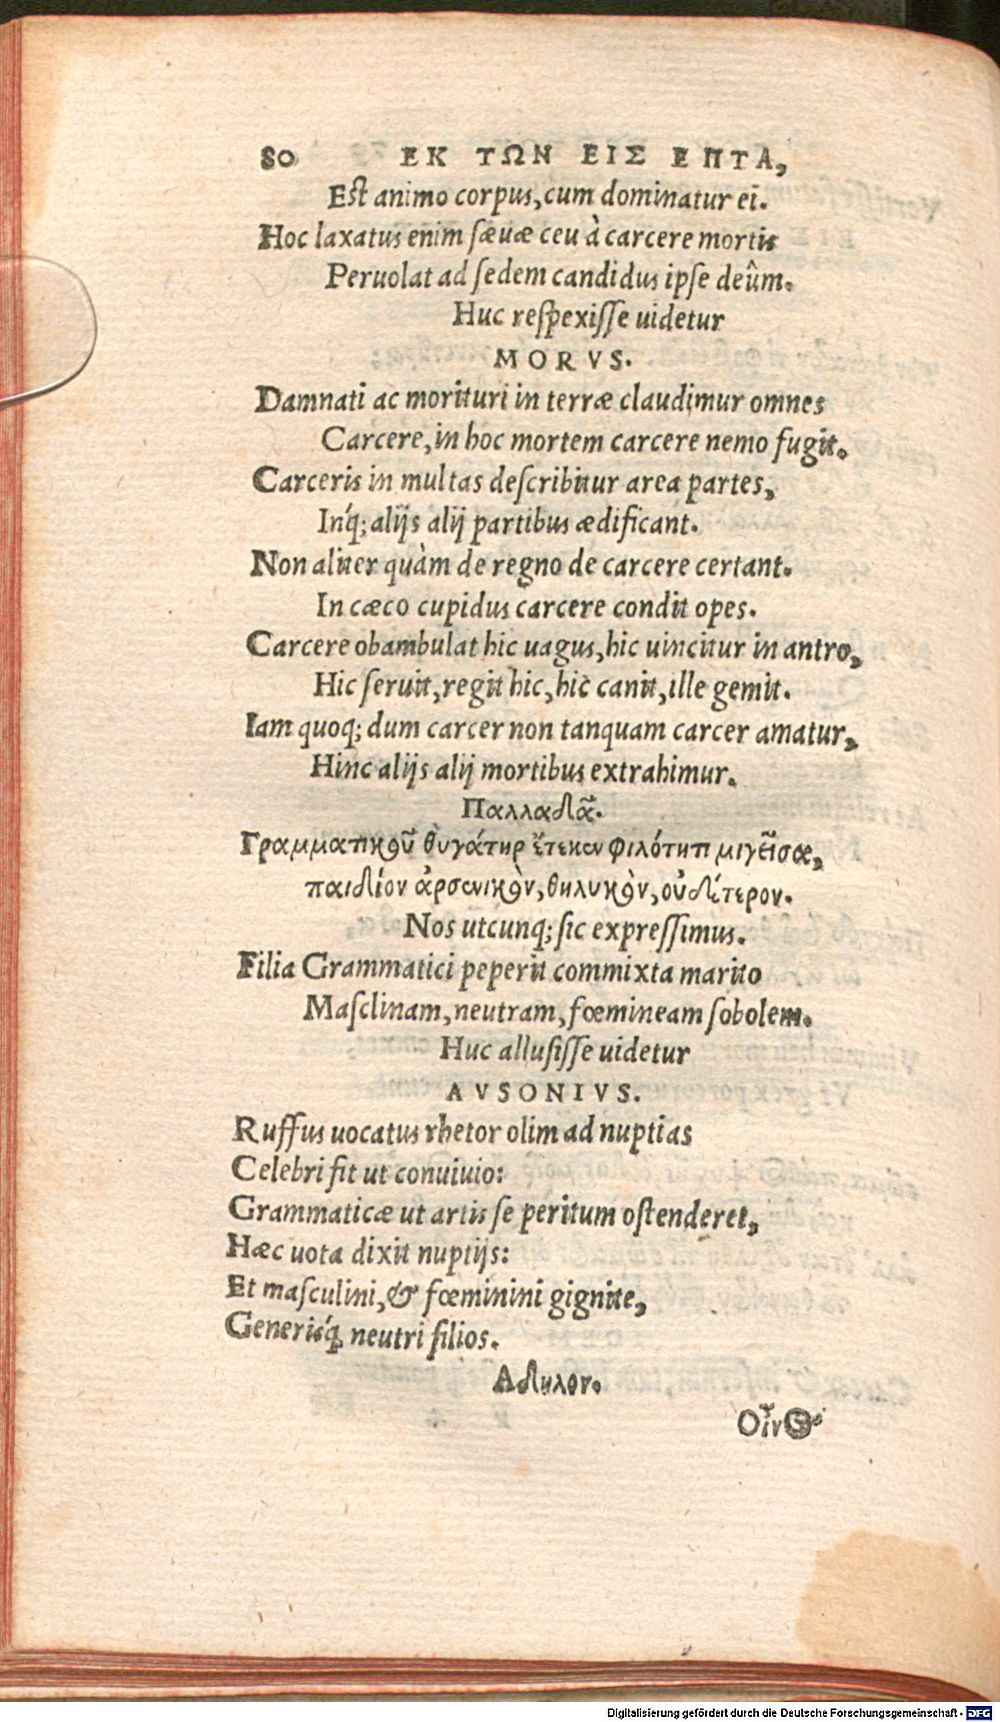 80 ΕΚ ΤΩΝ ΕΙΣ ΕΠΤΑ,
Est animo corpus, cum dominatur ei.
Hoc laxatus enim sæuæ ceu à carcere mortis
Peruolat ad sedem candidus ipse deûm.
Huc respexisse uidetur
MORVS.
Damnati ac morituri in terræ claudimur omnes
Carcere, in hoc mortem carcere nemo fugit.
Carceris in multas describitur area partes,
Inq́; alijs alij partibus ædificant.
Non aliter quàm de regno de carcere certant.
In cæco cupidus carcere condit opes.
Carcere obambulat hic uagus, hic uincitur in antro,
Hic seruit, regit hic, hic canit, ille gemit.
Iam quoq; dum carcer non tanquam carcer amatur,
Hinc alijs alij mortibus extrahimur.
Παλλαδᾶ.
Γραμματικοῦ θυγάτηρ ἔτεκεν φιλότητι μιγεῖσα,
παιδίον ἀρσενικὸν, θηλυκὸν, οὐδέτερον.
Nos utcunq; sic expressimus.
Filia Grammatici peperit commixta marito
Masclinam, neutram, fœmineam sobolem.
Huc allusisse uidetur
AVSONIVS.
Ruffus uocatus rhetor olim ad nuptias
Celebri fit ut conuiuio:
Grammaticæ ut artis se peritum ostenderet,
Hæc uota dixit nuptijs:
Et masculini, & fœminini gignite,
Generisq́ neutri filios.
Αδηλον.
Οἶνος
Digitalisierung gefördert durch die Deutsche Forschungsgemeinschaft - DFG